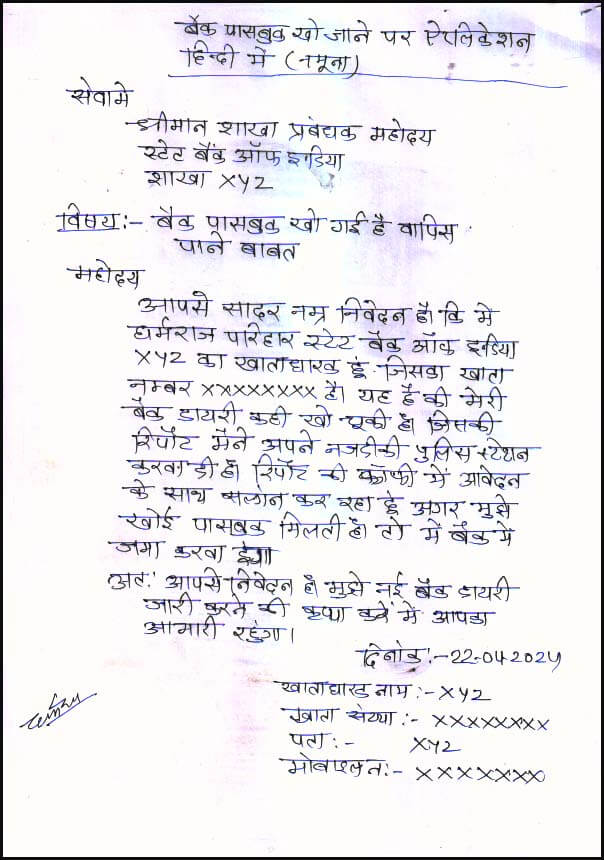 बैंक पासबुक खो जाने पर ऐप्लिकेशन
हिन्दी में (नमूना)
सेवामे
श्रीमान शाखा प्रबंधक महोदय
स्टेट बैंक ऑफ इन्डिया
शाखा XYZ
विषय:- बैंक पासबुक खो गई है वापिस
पाने बाबत
महोदय
आपसे सादर नम्र निवेदन है। कि मे
धर्मराज परिहार स्टेट बैंक ऑफ इन्डिया
XYZ का खाताधारक हूं जिसका खाता
नम्बर XXXXXXXX है। यह है की मेरी
बैंक डायरी कही खो चूकी है। जिसकी
रिर्पोट मैने अपने नजदीकी पुलिस स्टेशन
करवा दी है। रिर्पोट की कॉफी में आवेदन
के साथ सलंग्न कर रहा हूं अगर मुझे
खोई पासबुक मिलती है। तो में बैंक में
जमा करवा दूंगा
अत: आपसे निवेदन है। मुझे नई बैंक डायरी
जारी करने की कृपा करें में आपका
आभारी रहुंगा।
दिनांक:-22.04.2024
खाताधारक नाम:- XYZ
खाता संख्या:- XXXXXXXX
पता:- XYZ
मोबाइल न:- XXXXXXX